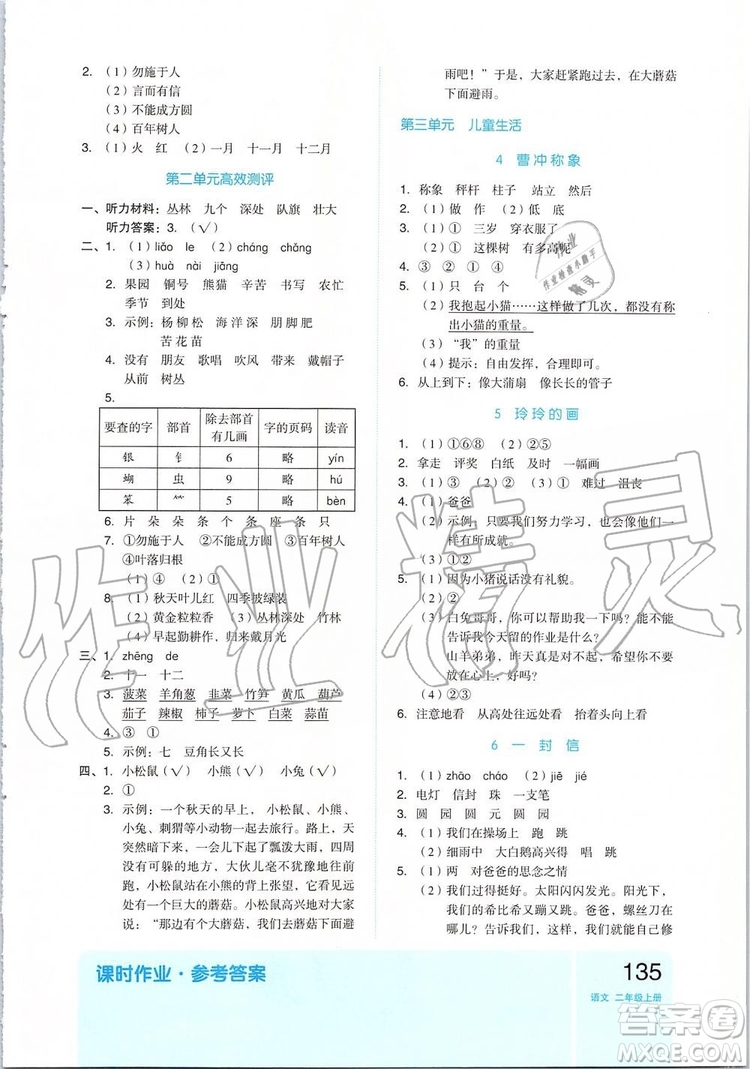 2. (1)勿施于人
(2)言而有信
(3)不能成方圆
(4)百年树人
3. (1)火 红 (2)一月 十一月 十二月
第二单元高效测评
一、听力材料：丛林 九个 深处 队旗 壮大
听力答案：3. (√)
二、1. (1)liǎo le (2)cháng chǎng
(3)huà nài jiāng
2. 果园 铜号 熊猫 辛苦 书写 农忙
季节 到处
3. 示例：杨 柳 松 海 洋 深 朋 脚 肥
苦 花 苗
4. 没有 朋友 歌唱 吹风 带来 戴帽子
从前 树丛
5.
要查的字 部首 除去部首有几画 字的页码 读音
银 钅 6 略 yín
蝴 虫 9 略 hú
笨 ⺮ 5 略 bèn
6. 片 朵 朵 条 个 条 座 条 只
7. ①勿施于人 ②不能成方圆 ③百年树人
④叶落归根
(1)④ (2)① (3)②
8. (1)秋天叶儿红 四季披绿装
(2)黄金粒粒香 (3)丛林深处 竹林
(4)早起勤耕作，归来戴月光
三、1. zhēng de
2. 十一 十二
3. 菠菜 羊角葱 韭菜 竹笋 黄瓜 葫芦
茄子 辣椒 柿子 萝卜 白菜 蒜苗
4. ③①
5. 示例：七 豆角长又长
四、1. 小松鼠(√) 小熊(√) 小兔(√)
2. ①
3. 示例：一个秋天的早上，小松鼠、小熊、
小兔、刺猬等小动物一起去旅行。路上，天
突然暗下来，接着便下起了瓢泼大雨。四周
没有可躲的地方，大伙儿毫不犹豫地往前跑
去。小松鼠站在小熊的背上张望，看见前面
有一个巨大的蘑菇。小松鼠兴奋地对大家
说：“那边有个大蘑菇，我们到大蘑菇下面避
雨吧！”于是，大家赶紧跑过去，在大蘑菇
下面避雨。
第三单元 儿童生活
4 曹冲称象
1. 称象 秤杆 柱子 站立 然后
2. (1)做 作 (2)低 底
3. (1)① ① 三岁 穿衣服了
(2)② ① 这棵树 有多高呢
4. ③ ② ① ④
5. (1)只 台 个
(2)我抱起小猫……这样做了几次，都没有称
出小猫的重量。
(3)“我”的重量
(4)提示：自由发挥，合理即可。
6. 从上到下：像大蒲扇 像长长的管子
5 玲玲的画
1. (1)①⑥⑧ (2)②⑤
2. 拿走 评奖 白纸 及时 一幅画
3. (1)② (2)③ (3)① 难过 沮丧
4. (1)爸爸
(2)示例：只要我们努力学习，也会在将来
有所成就。
(3)①②
5. (1)因为小猪说话没有礼貌。
(2)②
(3)白兔哥哥，你可以帮助我一下吗？能不能
告诉我今天留的作业是什么？
山羊弟弟，昨天真是对不起，希望你不要
放在心上，好吗？
(4)②③
6. 注意地看 从高处往远处看 抬着头向上看
6 一封信
1. (1)zhāo cháo (2)jiē jié
2. 电灯 信封 珠 一支笔
3. 圆 园 圆 元 圆 园
4. (1)我们在操场上 跑 跳
(2)细雨中 大白鹅高兴
5. (1)两 对爸爸的思念之情
(2)我们过得挺好。太阳闪闪发光。阳光下，
我们的希比希又蹦又跳。爸爸，螺丝刀在
哪儿？告诉我们，这样我们就能自己修
课时作业·参考答案
135
语文 二年级上册
作业精灵
答案圈
MXQE.COM